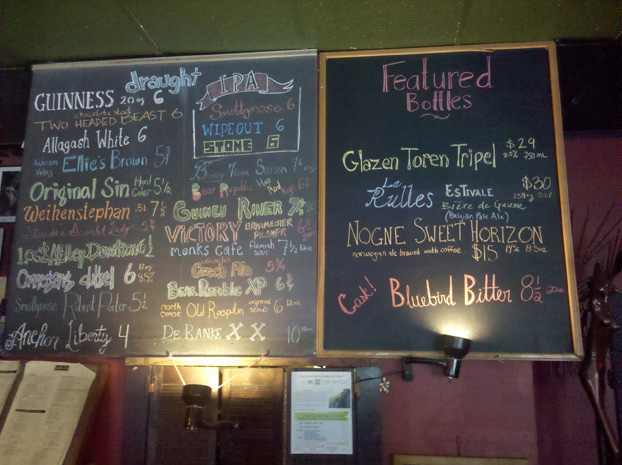 draught
GUINNESS 20oz 6
chocolate stout
TWO HEADED BEAST 6
Allagash White 6
Anderson Valley Ellie's Brown 5 3/4
Original Sin Hard Cider 5 1/2
Weihenstephan .5l 7 1/2
Lost Abbey Devotion 6 1/2
Smuttynose Robust Porter 5 1/2
Anchor Liberty 4
IPA
Smuttynose 6
WIPEOUT 6
STONE 6
Bear Republic Hop Rod Rye
VICTORY BRAUMEISTER PILSNER
monks Cafe Flemish sour 7 1/2
BEAR REPUBLIC XP 6
north coast Old Rasputin imperial stout 6
DE RANKE XX 10
Featured
Bottles
Glazen Toren Tripel $29
750 ML
La Rulles ESTIVALE $30
Bière de Gaume
(Belgian Pale Ale)
NOGNE SWEET HORIZON
norwegian ale brewed with coffee $15
Cask! Bluebird Bitter 8 1/2 20oz